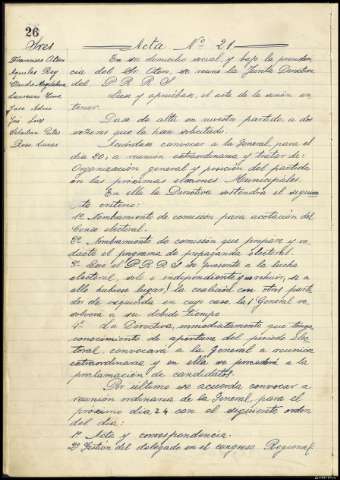 26
Sres
Acta Nº 21
Francisco Aten
En su domicilio social y bajo la presiden
Rey
cia del Sr. Aten, se reune la Junta Directiva
Claudio
del P.R.R.S.
Laureano
Leese y apruéban, el acta de la sesión an
Jose
terior.
José Luis
Dase de alta en nuestro partido a dos
Sebastian
señores que lo han solicitado.
Pere Lucas
Acuérdase convocar a la General para el
dia 20, a reunion extraordinaria y tratar de:
Organización general y posición del partido
en las proximas elecciones Municipales
En ella la Directiva sostendrá el siguien
te criterio:
1º Nombramiento de comisión para acotación del
Censo electoral.
2º Nombramiento de comisión que prepare y re
dacte el programa de propaganda electoral.
3º Que el P.R.R.S. se presente a la lucha
electoral, sol e independiente y a
ello hubiese lugar, la coalición con otros parti
dos de izquierda en cuyo caso la General re
solverá a su debido tiempo
4º La Directiva, inmediatamente que tenga
conocimiento de apertura del periodo Elec
toral, convocará a la General a reunion
extraordinaria y en ella se procederá a la
proclamación de candidatos.
Por ultimo se acuerda convocar a
reunión ordinaria de la General, para el
próximo dia 24 con el siguiente orden
del dia:
1º Acta y correspondencia.
2º Gestion del delegado en el congreso Regional